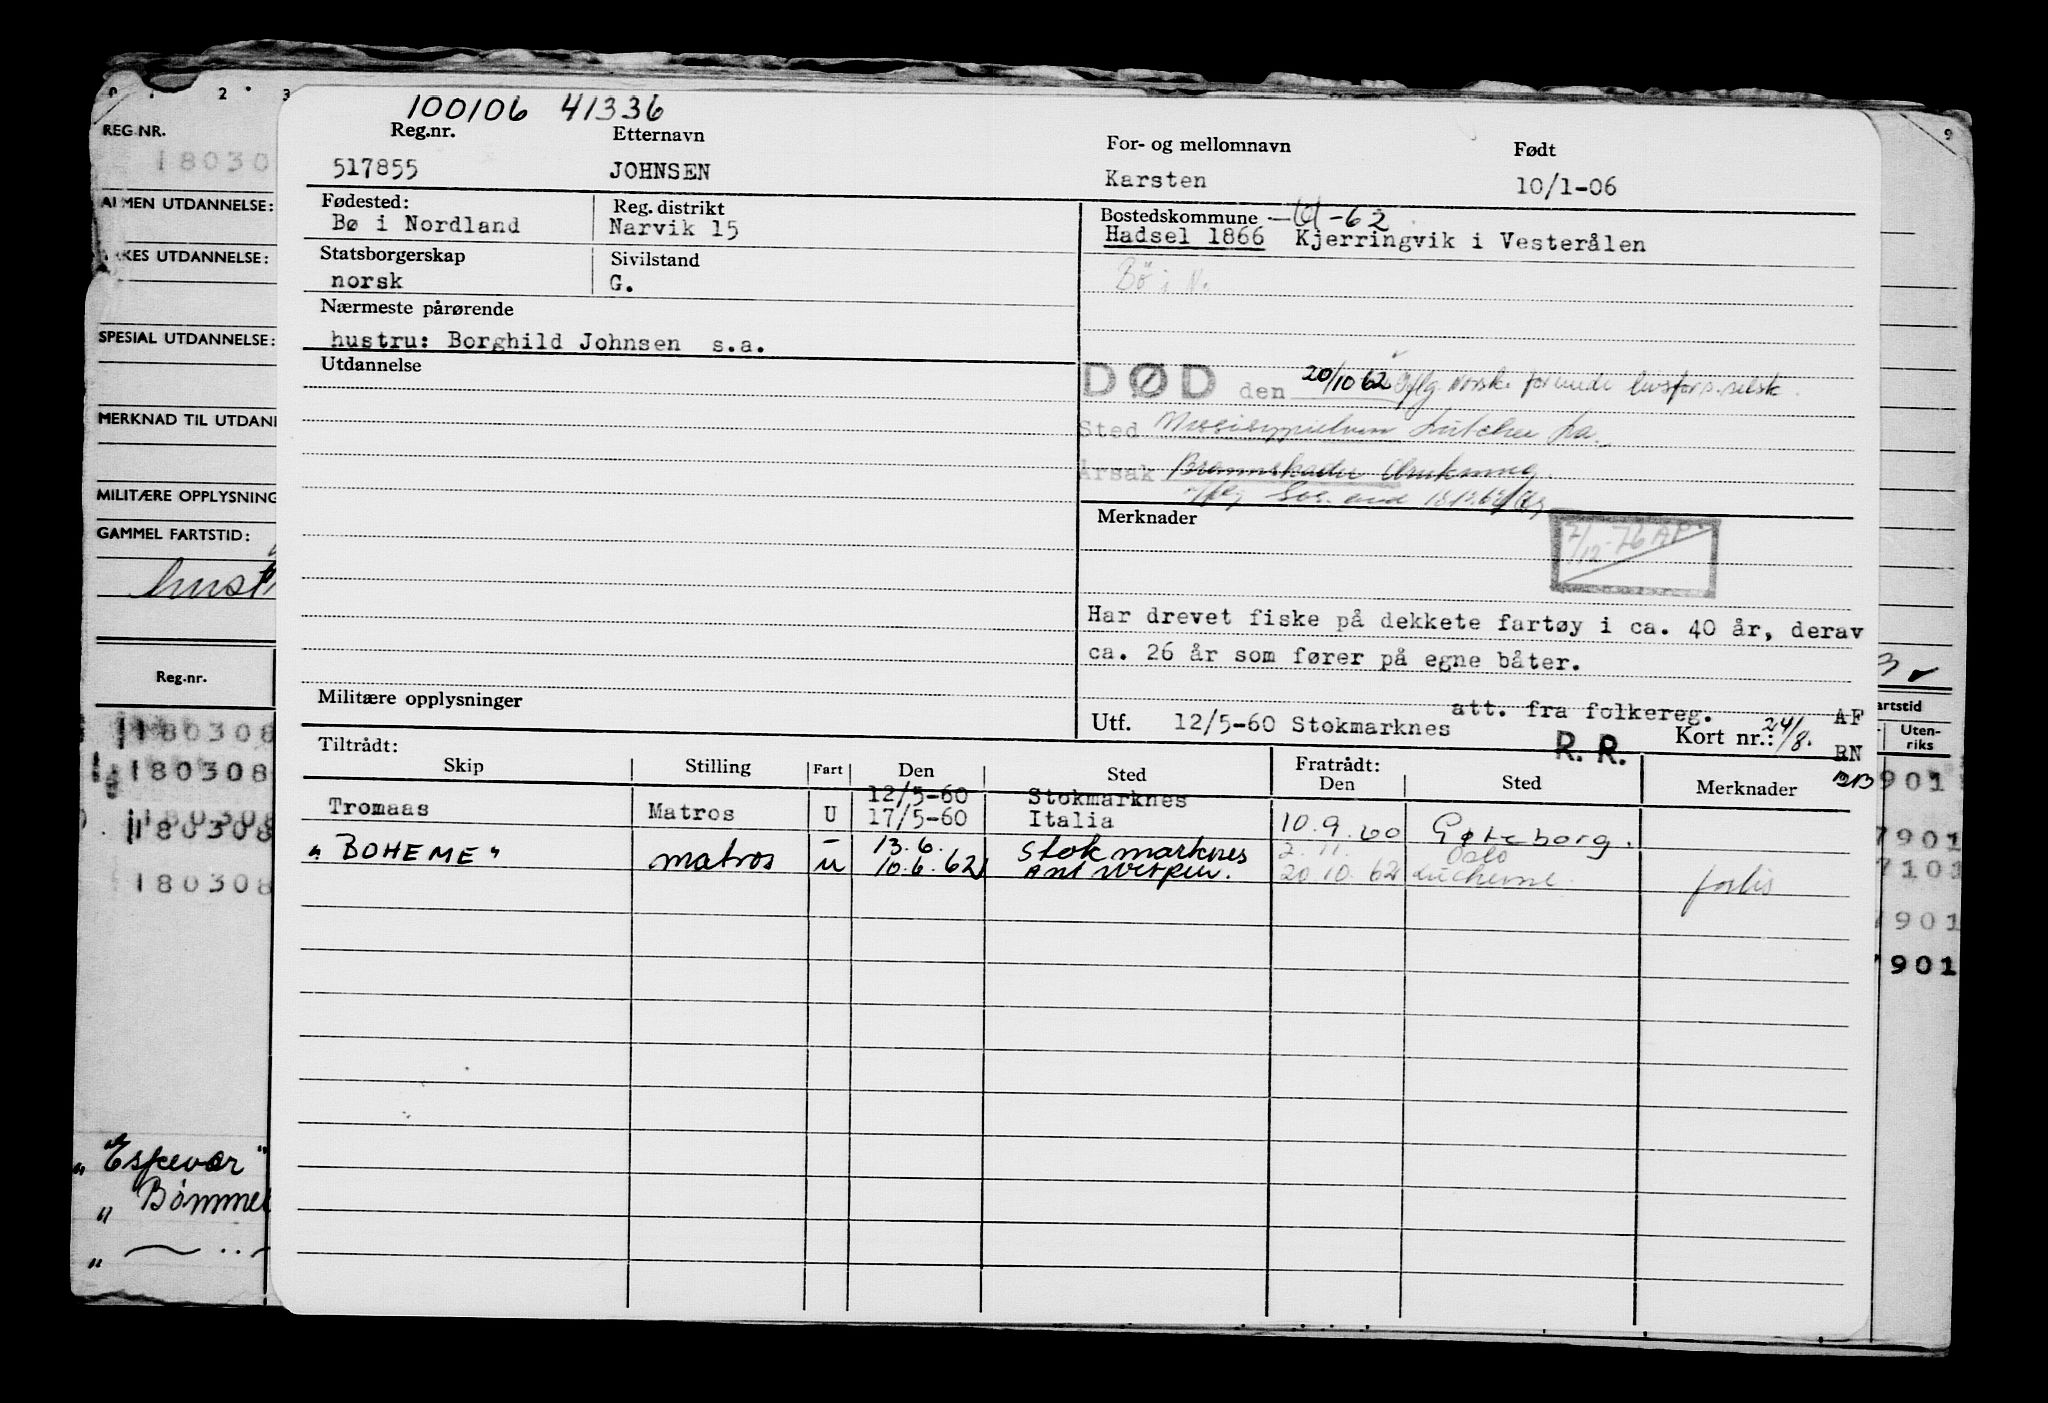 0 1 2 3 9
100106 41336
REG.NR. 180308
Reg.nr. Etternavn For- og mellomnavn Født
517855 JOHNSEN Karsten 10/1-06
ALMEN UTDANNELSE:
Fødested: Reg. distrikt Bostedskommune -62
Bø i Nordland Narvik 15 Hadsel 1866 Kjerringvik i Vesterålen
YRKES UTDANNELSE:
Statsborgerskap Sivilstand Bö i N.
norsk G.
Nærmeste pårørende
SPESIAL UTDANNELSE:
hustru: Borghild Johnsen s.a.
Utdannelse
DØD den 20/10 62 iflg norske forende livsfors.selsk.
MERKNAD TIL UTDANN
Sted Lutcher La.
Årsak Brannskader Drukning.
iflg
MILITÆRE OPPLYSNING
Merknader
GAMMEL FARTSTID:
2/12-76 AP
Har drevet fiske på dekkete fartøy i ca. 40 år, derav
ca. 26 år som fører på egne båter.
Reg.nr.
Militære opplysninger att. fra folkereg. AF
Utf. 12/5-60 Stokmarknes Kort nr.: 24/8.
R. R. RN
artstid
Uten-
riks
Tiltrådt: Fratrådt:
Skip Stilling Fart Den Sted Den Sted Merknader BB
12/5-60 Stokmarknes
Tromaas Matros U 17/5-60 Italia 10.9.60 Gøteborg.
– 13.6. Stokmarknes 2.11. Oslo
"BOHEME" matros u 10.6.62 Antwerpen. 20.10.62 forlis
180308
180308
180308
180308
901
7901
7101
901
7901
"Espevær"
" Bømmel
" — .. —